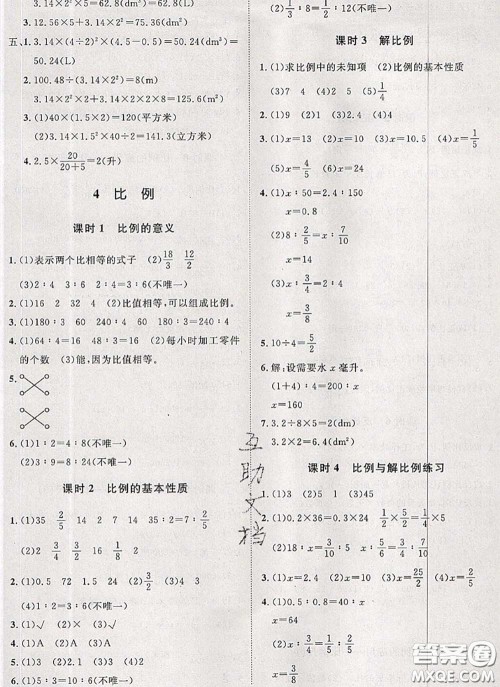 3. 3.2.56×3=37.68(dm²)
3. 12.56×5+3.14×2²=75.36(dm²)
五、1. 3.14×(4÷2)²×(4.5-0.5)=50.24(dm³)=
50.24(L)
2. 100.48÷(3.14×2²)=8(m)
3.14×2²×2+3.14×2×2×8=125.6(m²)
3. (1)40×(1.5×2)=120(平方米)
(2)3.14×1.5²×40÷2=141.3(立方米)
4. 2.5×20/(20+5)=2(升)
4 比 例
课时1 比例的意义
1. (1)表示两个比相等的式子 (2)18/3 12/2
(3)2∶1=4∶2=6∶3=8∶4(不唯一)
2. (1)16 2 32 4 (2)比值相等,可以组成比例。
3. (1)180∶3 60∶1 240∶4 (2)180∶3=240∶4
4. (1)64∶4 48∶3 16 16 (2)每小时加工零件
的个数 (3)能,因为比值相等。
5.
6. (1)1∶2=4∶8(不唯一)
(2)3∶9=8∶24(不唯一)
课时2 比例的基本性质
1. (1)35 2/5 14 2 7 35∶2=7∶2/5
(2)2 3/4 3/2 1 1/8 4(不唯一)
2. (1)0.5 72 1.5 24 (2)3/2 (3)4 2/5
3. (1)√ (2)√ (3)√
4. (1)A (2)A (3)A
5. (1)15 (2)1.9 (3)24
6. (1)5∶3=10∶6(不唯一)
(2)1/3∶8=1/2∶12(不唯一)
课时3 解比例
1. (1)求比例中的未知项 (2)比例的基本性质
(3)7 4 (4)2 5 (5)1/4
2. (1)9 (2)1 (3)40
3. (1)x=13 (2)x=10 (3)x=10 (4)x=1/5
(5)x=4/5 (6)x=15/2
4. (1)x∶50=2.4∶150
x=0.8
(2)8∶4/5=x∶7/10
x=14
(3)x∶1/4=3/4∶1/2
x=3/8
5. 10÷4=5/2
6. 解:设需要水x毫升。
(1+4)∶4=200∶x
x=160
7. 3.2÷8×5=2(dm)
3.2×2=6.4(dm²)
课时4 比例与解比例练习
1. (1)3 (2)5 1 (3)45
(4)5
3. (1)x=2.4 (2)x=3 (3)x=25/2 (4)x=6/5
4. (1)0.5∶0.8=40∶x
x=64
互助文档
答案圈
MXQE.COM